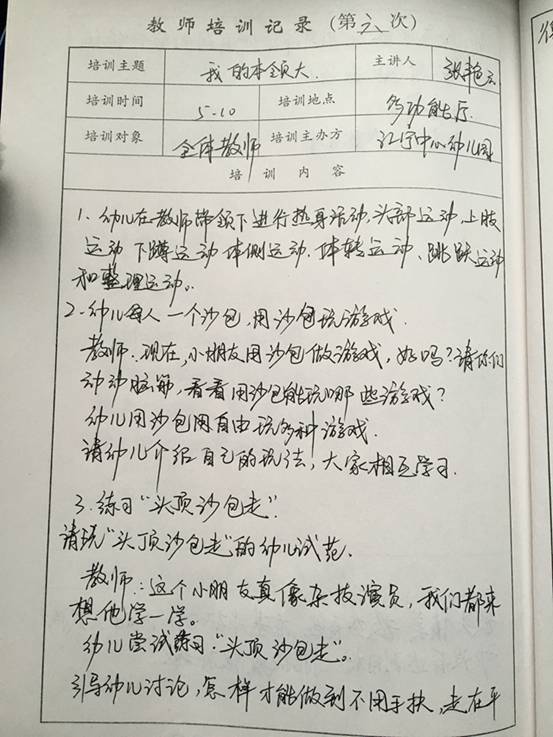 教师培训记录（第六次）
培训主题 我的本领大 主讲人 张艳
培训时间 5-10 培训地点 多功能厅
培训对象 全体教师 培训主办方 江宁中心幼儿园
培训内容
1、幼儿在教师带领下进行热身活动，头部运动，上肢
运动、下蹲运动、体侧运动、体转运动、跳跃运动
和整理运动。
2、幼儿每人一个沙包，用沙包玩游戏.
教师：现在，小朋友用沙包做游戏，好吗？请你们
动动脑筋，看看用沙包能玩哪些游戏？
幼儿用沙包自由玩多种游戏.
请幼儿介绍自己的玩法，大家相互学习.
3、练习“头顶沙包走”.
请玩“头顶沙包走”的幼儿试范.
教师：这个小朋友真像杂技演员，我们都来
想他学一学。
幼儿尝试练习“头顶沙包走”。
引导幼儿讨论，怎样才能做到不用手扶，走在平